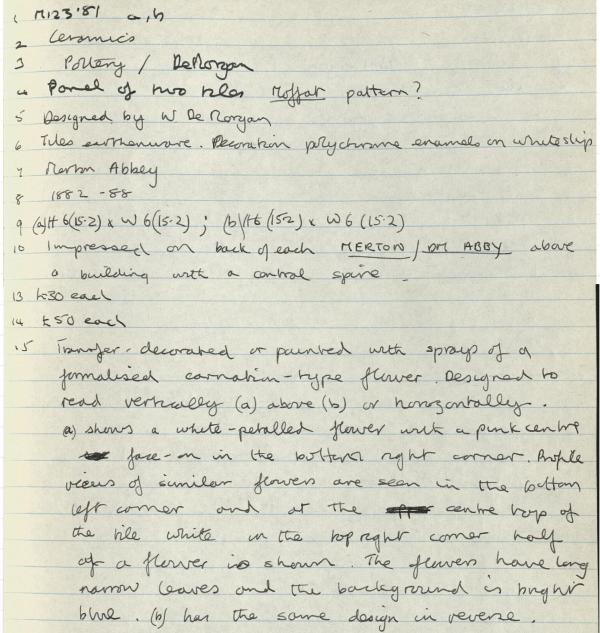 1 M123'81 a,b
2 Ceramics
3 Pottery / De Morgan
4 Panel of two tiles Moffat pattern?
5 Designed by W De Morgan
6 Tiles earthenware. Decoration polychrome enamels on white slip
7 Merton Abbey
8 1882 - 88
9 (a) H 6 (15.2) x W 6 (15.2) ; (b) H 6 (15.2) x W 6 (15.2)
10 Impressed on back of each MERTON / DM ABBY above
a building with a central spire.
13 £30 each
14 £50 each
15 Transfer-decorated or painted with sprays of a
formalised carnation-type flower. Designed to
read vertically (a) above (b) or horizontally.
a) shows a white-petalled flower with a pink centre
face-on in the bottom right corner. Profile
views of similar flowers are seen in the bottom
left corner and at the centre top of
the tile while in the top right corner half
of a flower is shown. The flowers have long
narrow leaves and the background is bright
blue. (b) has the same design in reverse.